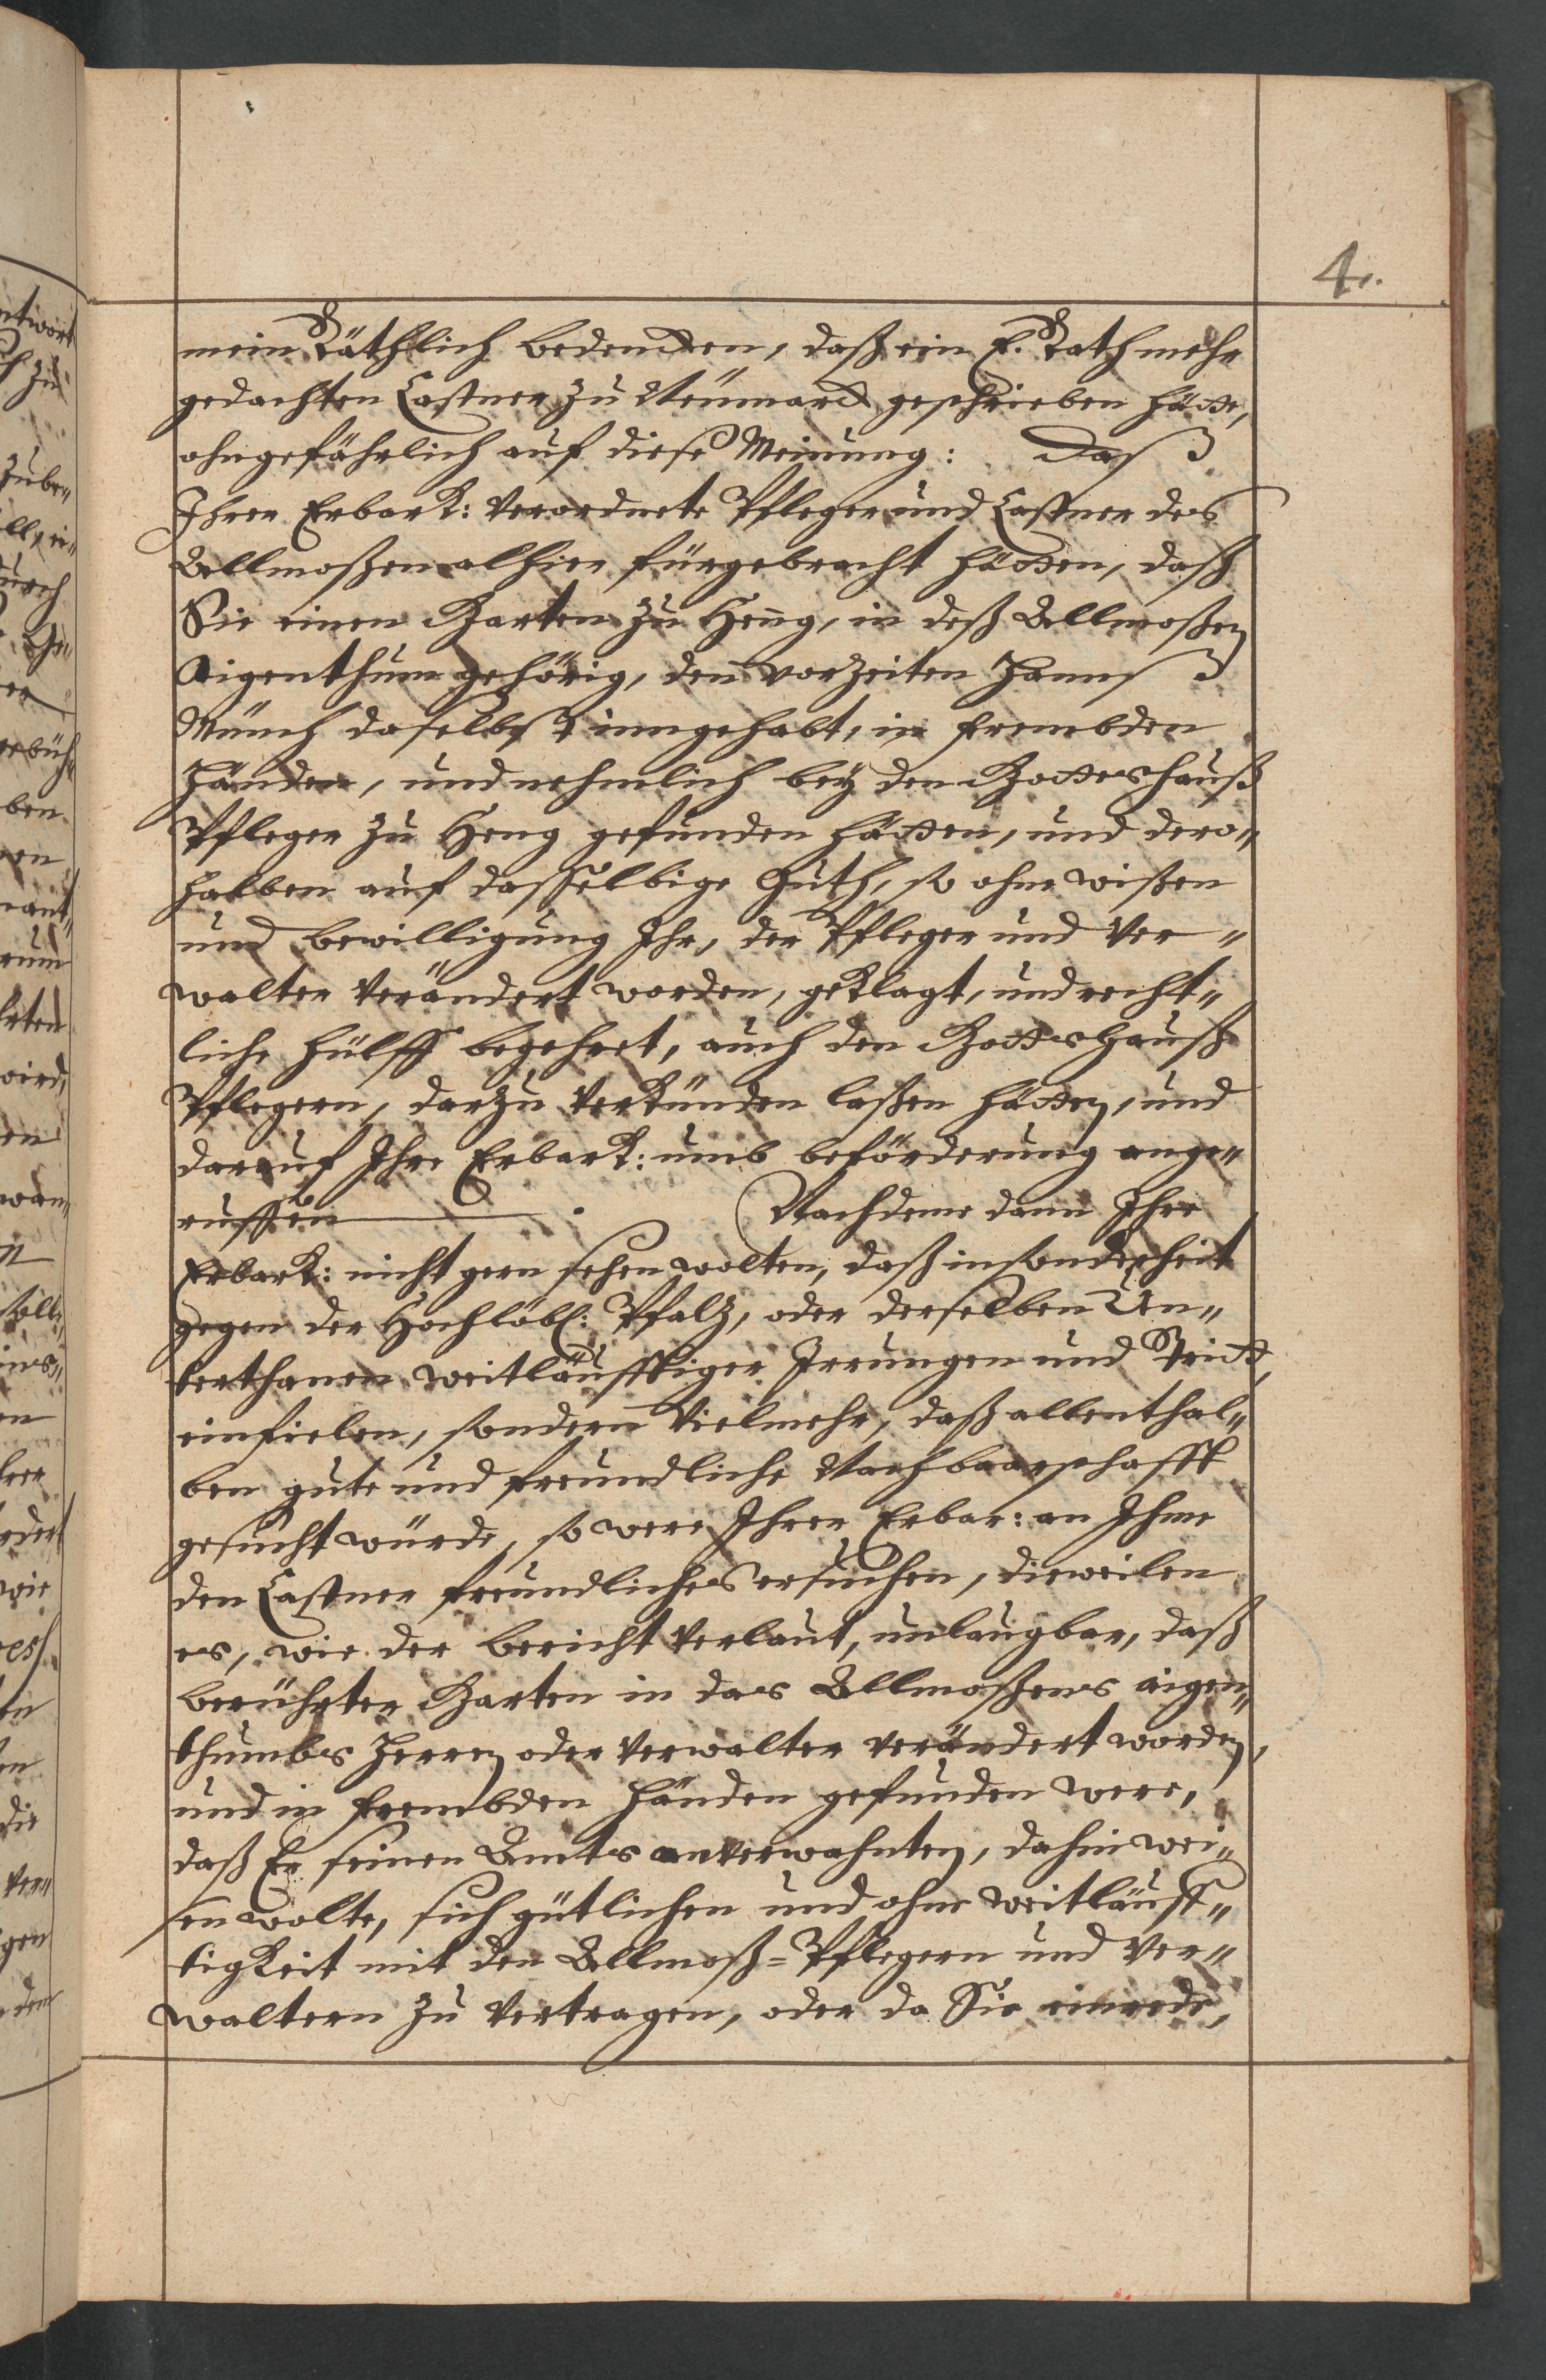 4.
mein Räthlich bedencken, daß ein E. Rath mehr
gedachten Castner zu Neumarck geschrieben hätte,
ohngefährlich auf diese Meinung: Daß
Ihrer Erbark: verordnete Pfleger und Castner des
Allmoßen alhier fürgebracht hätten, daß
Sie einen Garten zu Heng, in deß Allmoßen
Aigenthum gehörig, den vorzeiten Hannß
Münch daselbst inngehabt, in frembden
Händen, und nehmlich bey den Gotteshauß
Pfleger zu Heng gefunden hätten, und dero„
halben auf dasselbige Guth, so ohne wißen
und bewilligung Ihr, der Pfleger und Ver„
walter verändert worden, geklagt, und recht„
liche hülff begehret, auch den Gotteshauß
Pflegern, darzu verkünden laßen hätten, und
darauf Ihre Erbark: umb beförderung ange„
ruffen. Nachdeme dann Ihre
Erbark: nicht gern sehen wolten, daß insonderheit
gegen der Hochlöbl: Pfalz, oder derselben Un„
terthanen weitläufftiger Irrungen und Stritt,
einfielen, sondern vielmehr, daß allenthal„
ben gute und freundliche Nachbaarschafft
gesucht würde, so were Ihrer Erbar: an Ihme
den Castner freundliches ersuchen, dieweilen
es, wie der bericht verlaut, unlaugbar, daß
berührter Garten in das Allmoßens aigen„
thumbs Herren oder Verwalter verändert worden,
und in frembden Händen gefunden were,
daß Er seinen Amts anverwahnten, dahin wei„
sen wolte, sich gütlichen und ohne weitläuff„
tigkeit mit den Allmoß=Pflegern und Ver„
waltern zu vertragen, oder da Sie einrede,